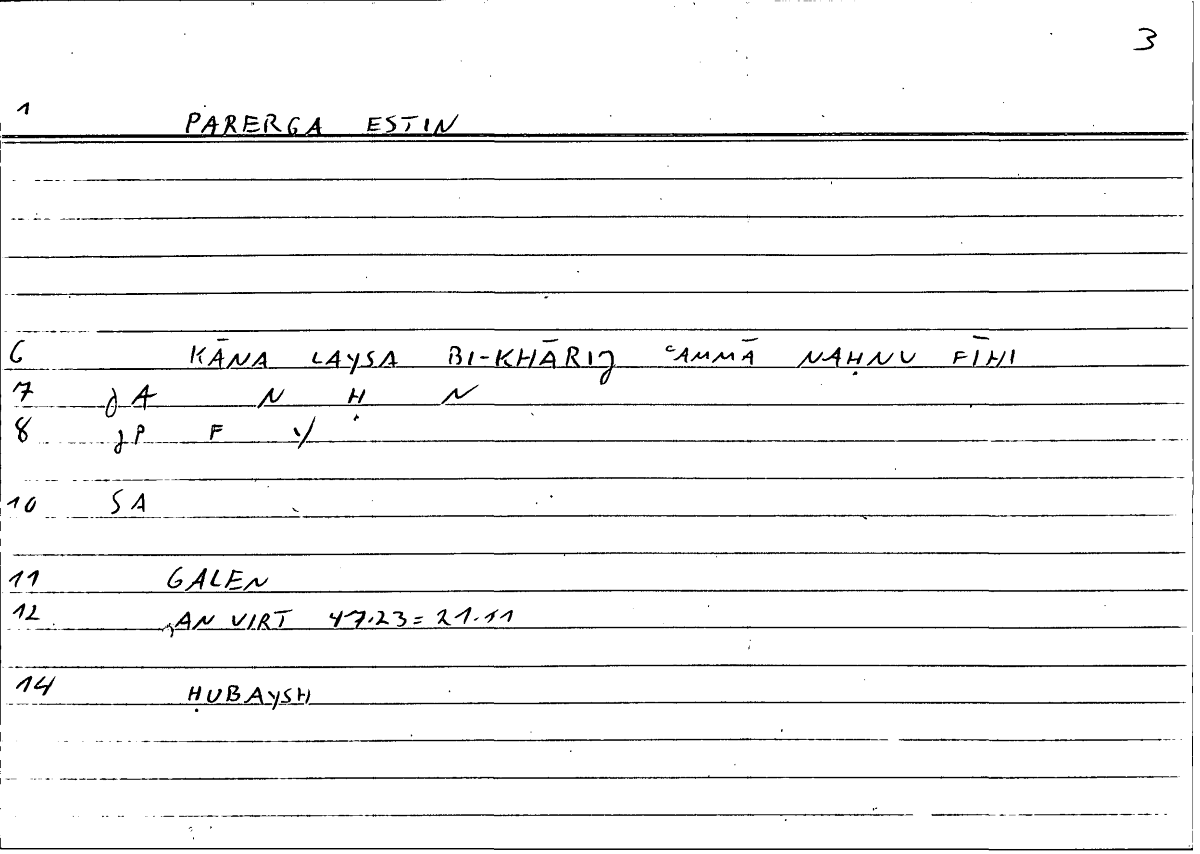 3
1 PARERGA ESTIN
6 KĀNA LAYSA BI-KHĀRIJ ʿAMMĀ NAḤNU FĪHI
7 jA N Ḥ N
8 jP F Y
10 SA
11 GALEN
12 AN VIRT 47.23 = 21.11
14 ḤUBAYSH